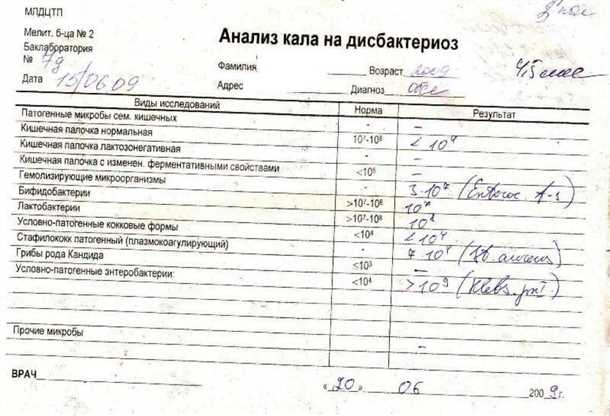 МЛДЦТП
Мелит. б-ца № 2
Баклаборатория
Анализ кала на дисбактериоз
№ 79
Фамилия Возраст 2009 4,5 мес
Дата 15/06 09 Адрес Диагноз
Виды исследований Норма Результат
Патогенные микробы сем. кишечных - -
Кишечная палочка нормальная 10⁷-10⁸ < 10⁴
Кишечная палочка лактозонегативная - -
Кишечная палочка с изменен. ферментативными свойствами <10⁵ -
Гемолизирующие микроорганизмы - 3·10⁷ (Enteroc.
Бифидобактерии >10⁷-10⁸ 10⁷
Лактобактерии >10⁷-10⁸
Условно-патогенные кокковые формы <10⁴ <10⁴
Стафилококк патогенный (плазмокоагулирующий) - (St. aureus)
Грибы рода Кандида <10³ -
Условно-патогенные энтеробактерии: <10⁴ >10⁹ (Klebs. pn
Прочие микробы -
ВРАЧ
«20» 06 2009г.